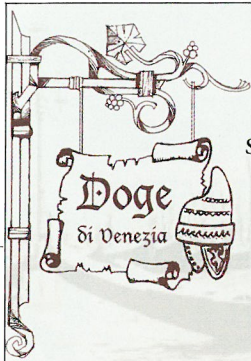 Doge
di Venezia